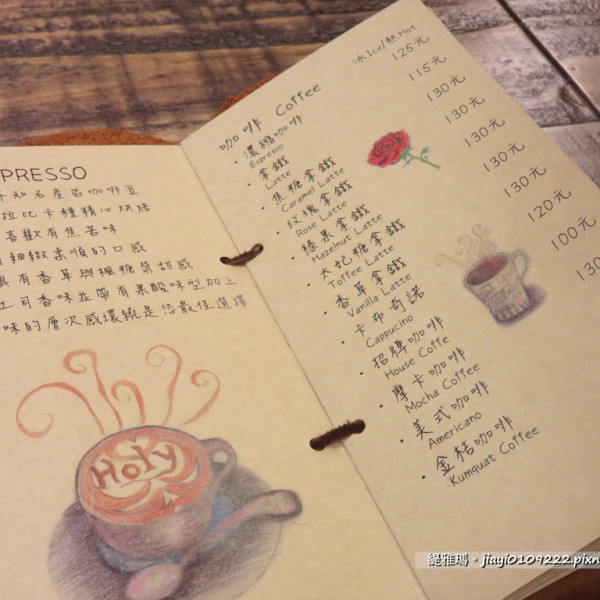 PRESSO
不知名產區咖啡豆
拉比卡種精心烘焙
喜歡有焦苦味
細緻柔順的口感
具有香草與楓糖某甜感
土司香味並帶有果酸味型加上
味的層次感環繞是您最佳選擇
Hoyy
咖啡 Coffee
冰Ice/熱Hot
濃糖咖啡
Espresso
125元
拿鐵
Latte
115元
焦糖拿鐵
Caramel Latte
130元
玫瑰拿鐵
Rose Latte
130元
榛果拿鐵
Hazelnut Latte
130元
太妃糖拿鐵
Toffee Latte
130元
香草拿鐵
Vanilla Latte
130元
卡布奇諾
Cappucino
120元
招牌咖啡
House Coffe
100元
摩卡咖啡
Mocha Coffee
130
美式咖啡
Americano
金桔咖啡
Kumquat Coffee
緹雅瑪。jiayi0109222.pixn